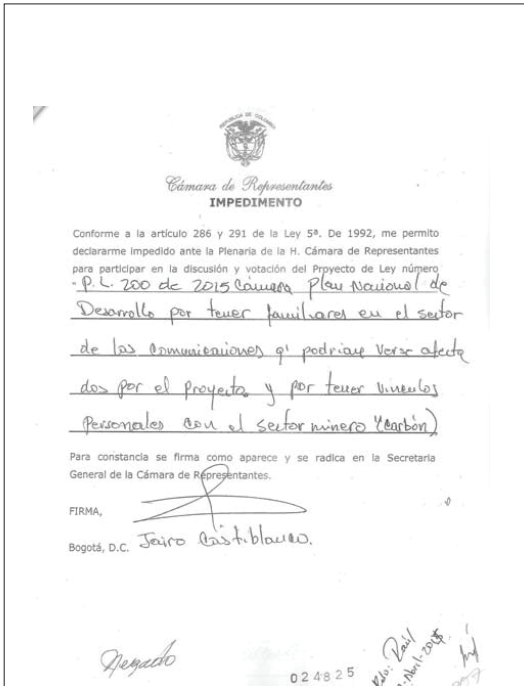 REPUBLICA DE COLOMBIA
Cámara de Representantes
IMPEDIMENTO
Conforme a la artículo 286 y 291 de la Ley 5ª. De 1992, me permito
declararme impedido ante la Plenaria de la H. Cámara de Representantes
para participar en la discusión y votación del Proyecto de Ley número
- P.L. 200 de 2015 Cámara Plan Nacional de
Desarrollo por tener familiares en el sector
de las comunicaciones q' podrian verse afecta
dos por el proyecto y por tener vinculos
Personales con el sector minero "(Carbón)
Para constancia se firma como aparece y se radica en la Secretaria
General de la Cámara de Representantes.
FIRMA,
Bogotá, D.C. Jairo Castiblanco.
Negado
024825
Rdo: Raúl
Abril-2015